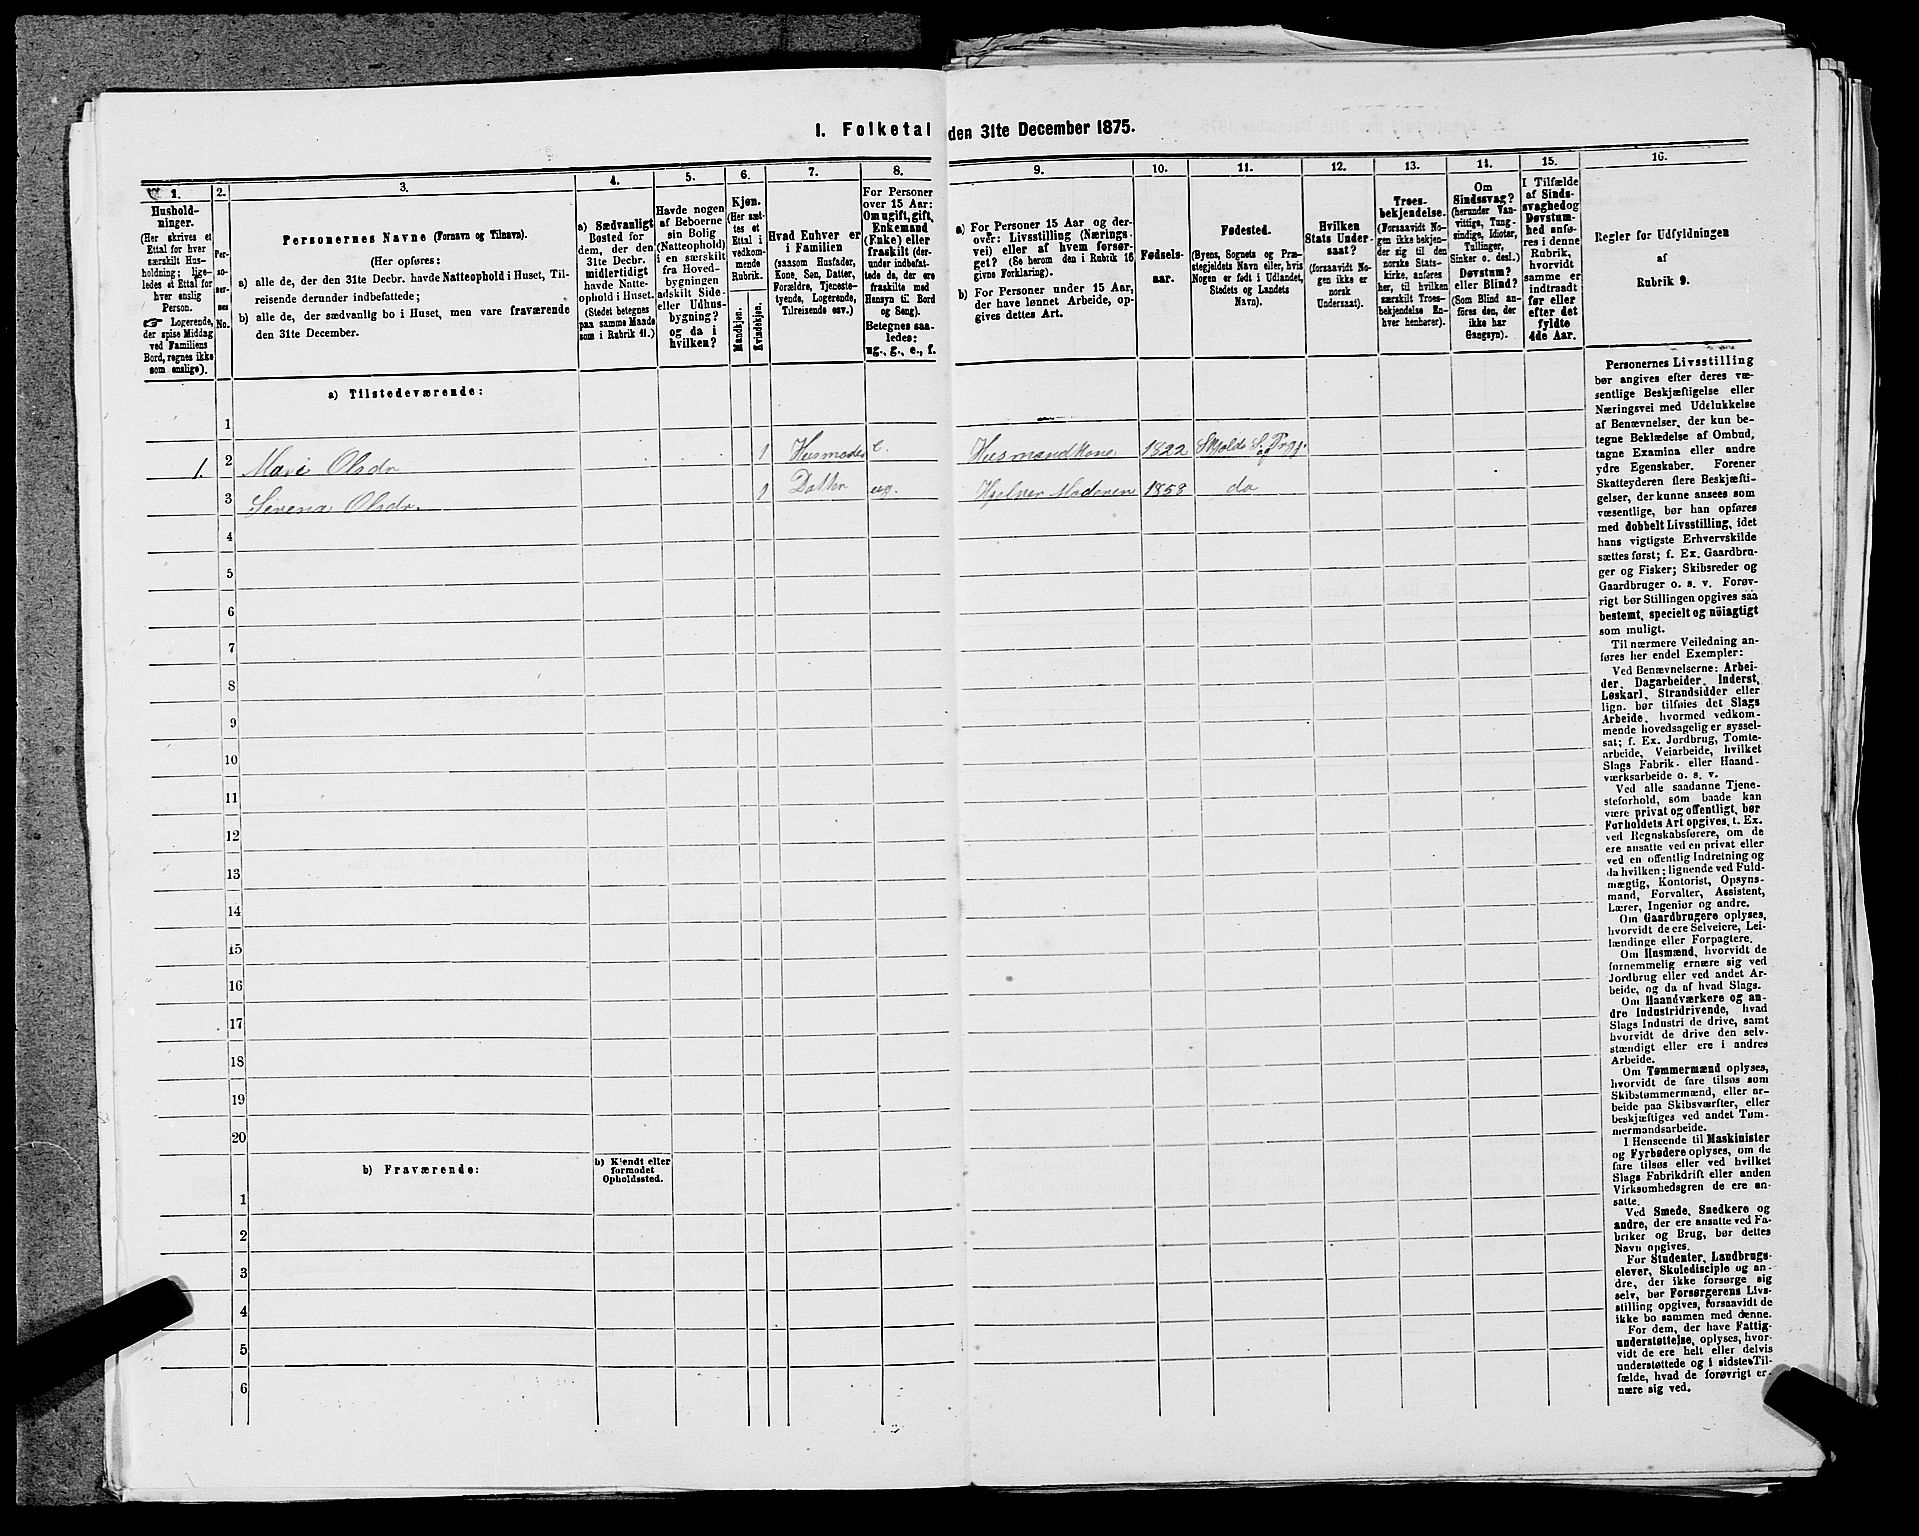 I. Folketal den 31te December 1875.
1.
Hushold-
ninger.
(Her skrives et
Ettal for hver
særskilt Hus-
holdning; lige-
ledes et Ettal for
hver enslig
Person.
☞ Logerende,
der spise Middag
ved Familiens
Bord, regnes ikke
som enslige).
2.
Per-
so-
ner-
nes
No.
3.
Personernes Navne (Fornavn og Tilnavn).
(Her opføres:
a) alle de, der den 31te Decbr. havde Natteophold i Huset, Til-
reisende derunder indbefattede;
b) alle de, der sædvanlig bo i Huset, men vare fraværende
den 31te December.
4.
a) Sædvanligt
Bosted for
dem, der den
31te Decbr.
midlertidigt
havde Natte-
ophold i Huset.
(Stedet betegnes
paa samme Maade
som i Rubrik 11.)
5.
Havde nogen
af Beboerne
sin Bolig
(Natteophold)
i en særskilt
fra Hoved-
bygningen
adskilt Side-
eller Udhus-
bygning?
og da i
hvilken?
6.
Kjøn.
(Her sæt-
tes et
Ettal i
vedkom-
mende
Rubrik.
Mandkjøn.
Kvindekjøn.
7.
Hvad Enhver er
i Familien
(saasom Husfader,
Kone, Søn, Datter,
Forældre, Tjeneste-
tyende, Logerende,
Tilreisende osv.)
8.
For Personer
over 15 Aar:
Om ugift, gift,
Enkemand
(Enke) eller
fraskilt (der-
under indbefat-
tede de, der ere
fraskilte med
Hensyn til Bord
og Seng).
Betegnes saa-
ledes:
ug., g., e., f.
9.
a) For Personer 15 Aar og der-
over: Livsstilling (Nærings-
vei) eller af hvem forsør-
get? (Se herom den i Rubrik 16
givne Forklaring).
b) For Personer under 15 Aar,
der have lønnet Arbeide, op-
gives dettes Art.
10.
Fødsels-
aar.
11.
Fødested.
(Byens, Sognets og Præ-
stegjeldets Navn eller, hvis
Nogen er født i Udlandet,
Stedets og Landets
Navn).
12.
Hvilken
Stats Under-
saat?
(forsaavidt No-
gen ikke er
norsk
Undersaat).
13.
Troes-
bekjendelse.
(Forsaavidt No-
gen ikke bekjen-
der sig til den
norske Stats-
kirke, anføres
her, til hvilken
særskilt Troes-
bekjendelse En-
hver henhører).
14.
Om
Sindssvag?
(herunder Van-
vittige, Tung-
sindige, Idioter,
Tullinger,
Sinker o. desl.)
Døvstum?
eller Blind?
(Som Blind an-
føres den, der
ikke har
Gangsyn).
15.
I Tilfælde
af Sinds-
svaghed og
Døvstum-
hed anfø-
res i denne
Rubrik,
hvorvidt
samme er
indtraadt
før eller
efter det
fyldte
4de Aar.
16.
Regler for Udfyldningen
af
Rubrik 9.
a) Tilstedeværende:
1
1. 2 Mari Olsdr 1 Husmoder e. Husmandkone 1822 Skjolds S. og Prgj.
3 Serena Olsdr. 1 Datter ug. Hjelper Moderen 1858 do
4
5
6
7
8
9
10
11
12
13
14
15
16
17
18
19
20
b) Fraværende:
b) Kjendt eller
formodet
Opholdssted.
1
2
3
4
5
6
Personernes Livsstilling
bør angives efter deres væ-
sentlige Beskjæftigelse eller
Næringsvei med Udelukkelse
af Benævnelser, der kun be-
tegne Beklædelse af Ombud,
tagne Examina eller andre
ydre Egenskaber. Forener
Skatteyderen flere Beskjæfti-
gelser, der kunne ansees som
væsentlige, bør han opføres
med dobbelt Livsstilling, idet
hans vigtigste Erhvervskilde
sættes først; f. Ex. Gaardbru-
ger og Fisker; Skibsreder og
Gaardbruger o. s. v. Forøv-
rigt bør Stillingen opgives saa
bestemt, specielt og nöiagtigt
som muligt.
Til nærmere Veiledning an-
føres her endel Exempler:
Ved Benævnelserne: Arbei-
der, Dagarbeider, Inderst,
Løskarl, Strandsidder eller
lign. bør tilføies det Slags
Arbeide, hvormed vedkom-
mende hovedsagelig er syssel-
sat; f. Ex. Jordbrug, Tomte-
arbeide, Veiarbeide, hvilket
Slags Fabrik- eller Haand-
værksarbeide o. s. v.
Ved alle saadanne Tjene-
steforhold, som baade kan
være privat og offentligt, bør
Forholdets Art opgives, t. Ex.
ved Regnskabsførere, om de
ere ansatte ved en privat eller
ved en offentlig Indretning og
da hvilken; lignende ved Fuld-
mægtig, Kontorist, Opsyns-
mand, Forvalter, Assistent,
Lærer, Ingeniør og andre.
Om Gaardbrugere oplyses,
hvorvidt de ere Selveiere, Lei-
lændinge eller Forpagtere.
Om Husmænd, hvorvidt de
fornemmelig ernære sig ved
Jordbrug eller ved andet Ar-
beide, og da af hvad Slags.
Om Haandværkere og an-
dre Industridrivende, hvad
Slags Industri de drive, samt
hvorvidt de drive den selv-
stændigt eller ere i andres
Arbeide.
Om Tømmermænd oplyses,
hvorvidt de fare tilsøs som
Skibstømmermænd, eller ar-
beide paa Skibsværfter, eller
beskjæftiges ved andet Tøm-
mermandsarbeide.
I Henseende til Maskinister
og Fyrbødere oplyses, om de
fare tilsøs eller ved hvilket
Slags Fabrikdrift eller anden
Virksomhedsgren de ere an-
satte.
Ved Smede, Snedkere og
andre, der ere ansatte ved Fa-
briker og Brug, bør dettes
Navn opgives.
For Studenter, Landbrugs-
elever, Skoledisciple og an-
dre, der ikke forsørge sig
selv, bør Forsørgerens Livs-
stilling opgives, forsaavidt de
ikke bo sammen med denne.
For dem, der have Fattig-
understøttelse, oplyses, hvor-
vidt de ere helt eller delvis
understøttede og i sidste Til-
fælde, hvad de forøvrigt er-
nære sig ved.